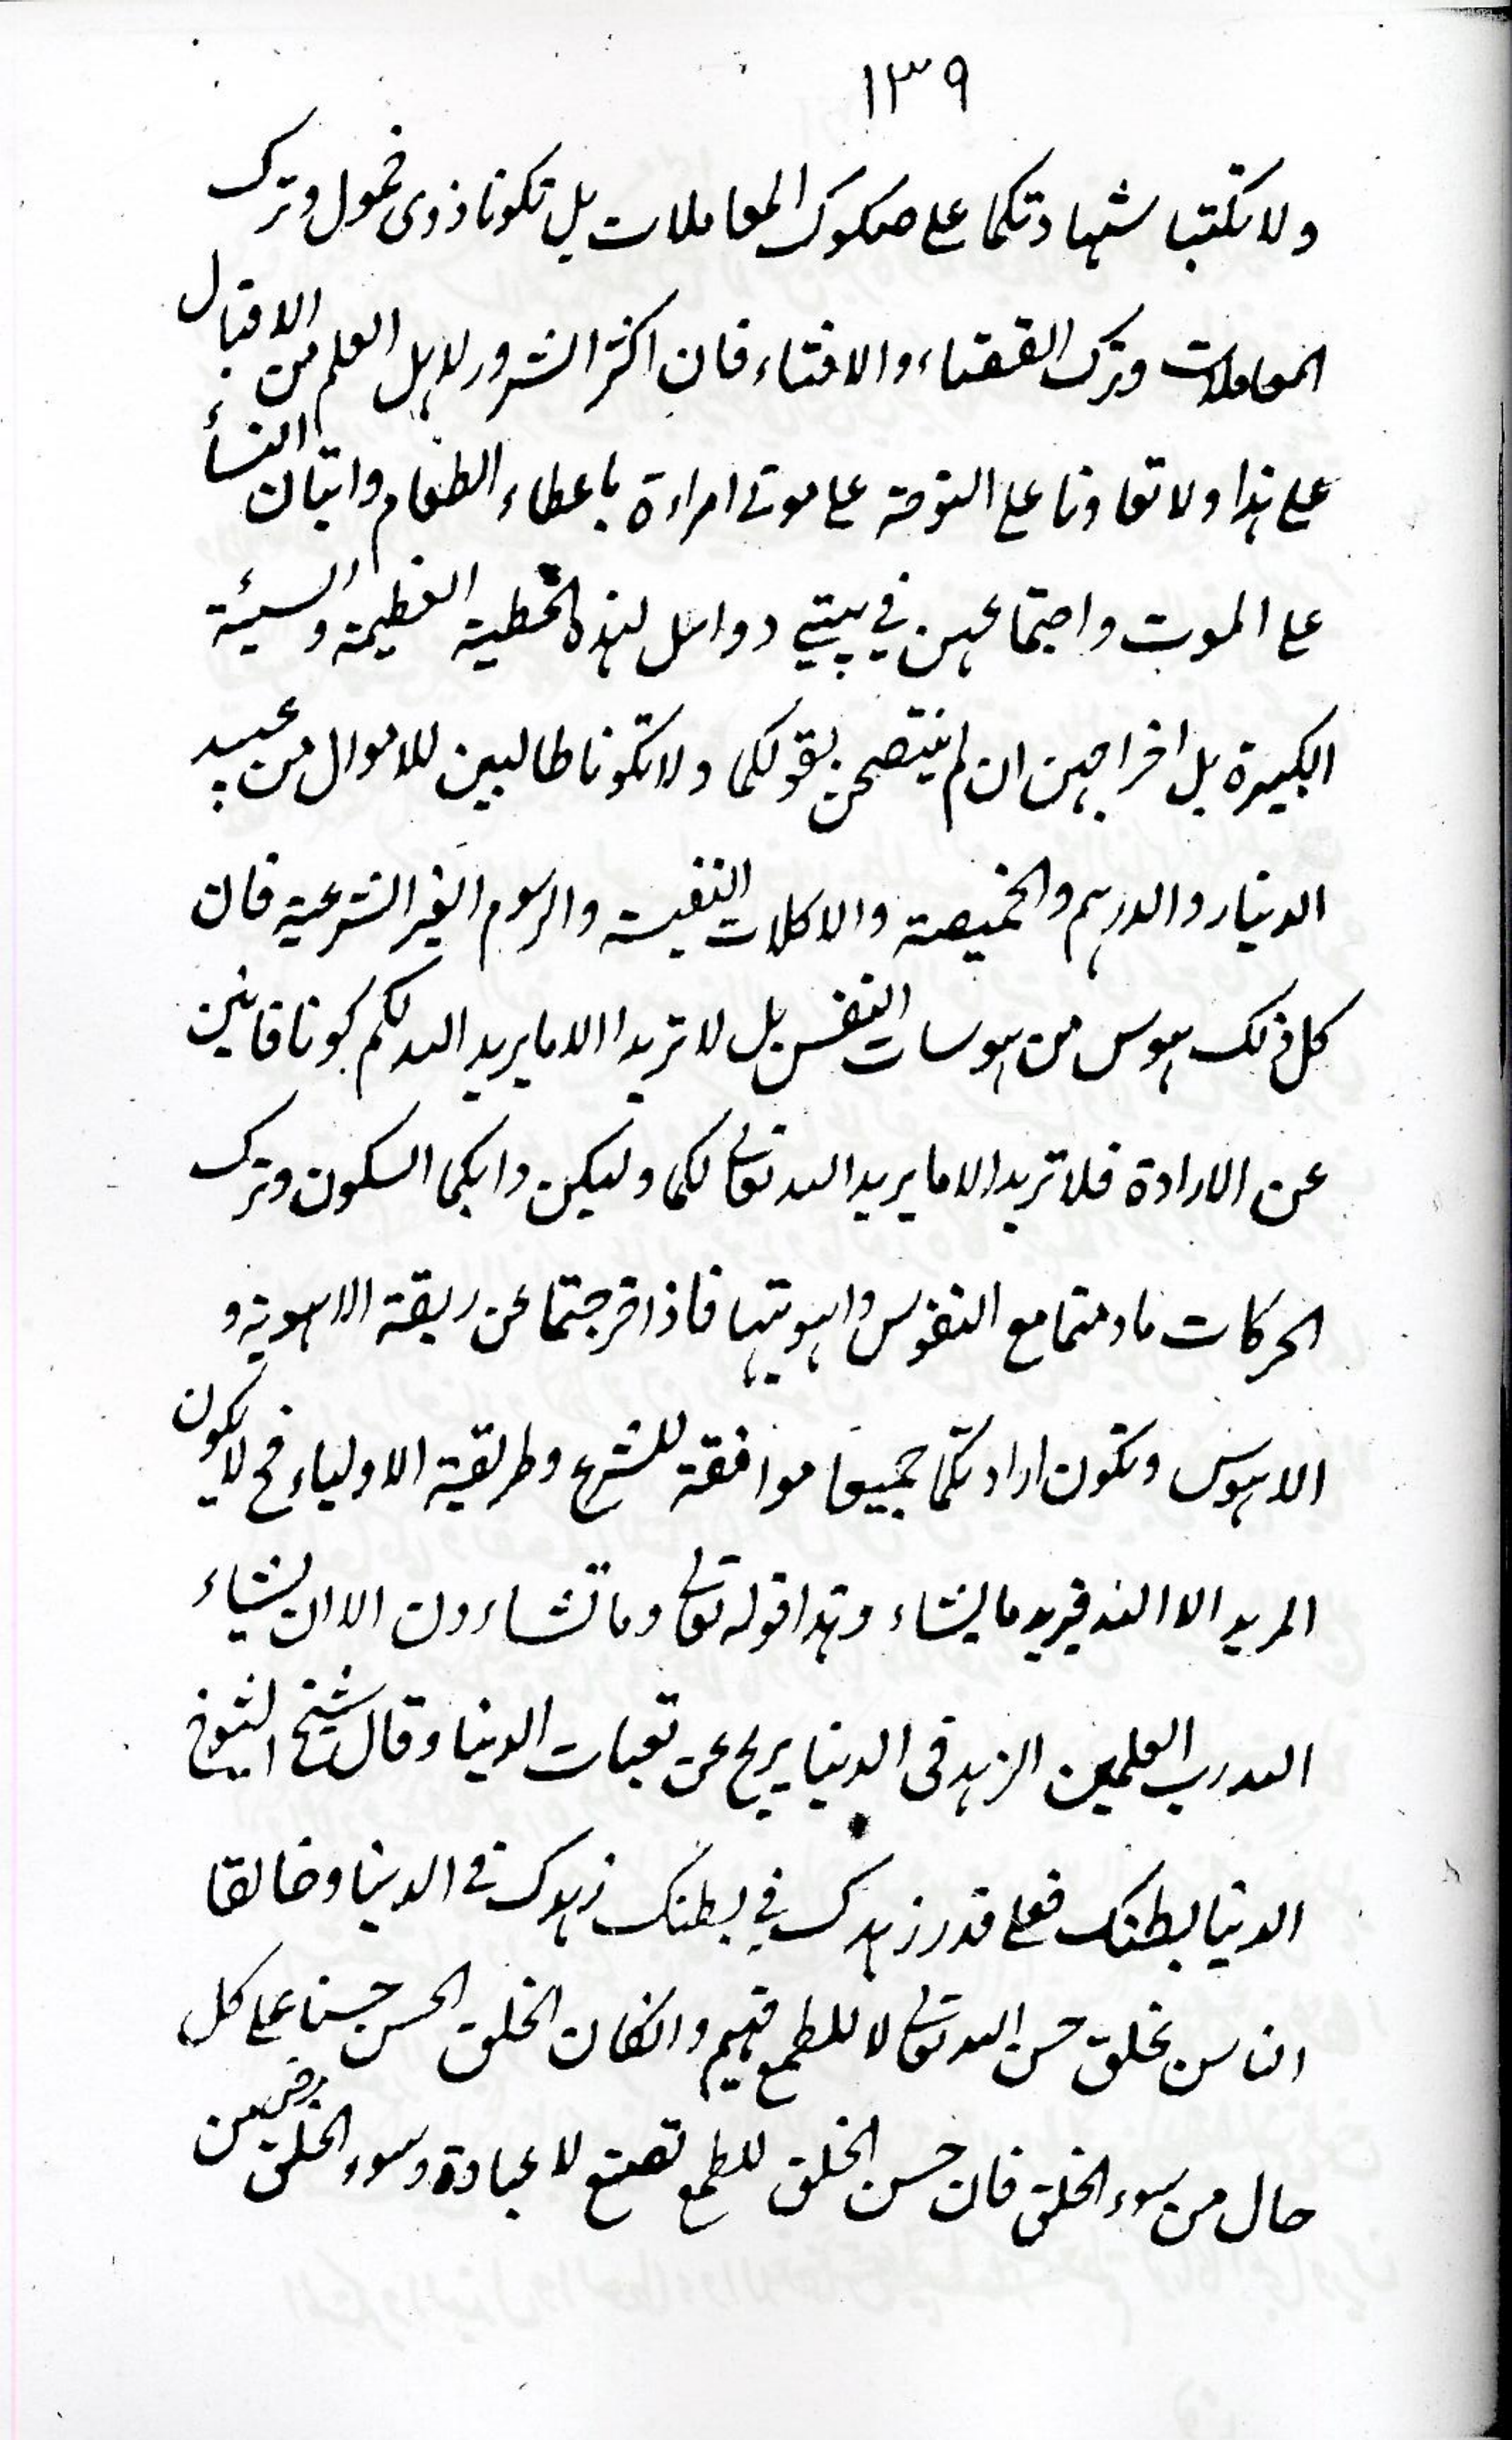 ١٣٩
ولا تكتبا شهادتكما على صكوك المعاملات بل تكونا ذوى خمول وترك
المعاملات وترك القضاء والافتاء فان اكثر الشرور لاهل العلم من الاقبال
على هذا ولا تعاونا على النوحة على موتى امراءة باعطاء الطعام واتيان النسأ
على الموت واجتماعهن في بيتي دواىل لهذه الخطية العظيمة والسيئة
الكبيرة بل اخراجهن ان لم ينتصحن بقولكما ولا تكونا طالبين للاموال من عبيد
الدينار والدرهم والخميصة والاكلات النفيسة والرسوم الغير الشرعية فان
كل ذلك هوس من هوسات النفس بل لا تريدا الا ما يريد الله لكم كونا فانيين
عن الارادة فلا تريدا الا ما يريد الله تعالى لكما وليكن دابكما السكون وترك
الحركات ما دمتما مع النفوس واهويتها فاذا خرجتما عن ربقة الاهوية و
الاهوس وتكون ارادتكما جميعا موافقة للشرع وطريقة الاولياء فح لا يكون
المريد الا الله فيريد ما يشاء وهذا قوله تعالى وما تشاءون الا ان يشاء
الله رب العلمين الزهد فى الدنيا يريح عن تعبات الدنيا وقال شيخ الشيوخ
الدنيا بطنك فعلى قدر زهدك في بطنك زهدك في الدنيا وخالقا
الناس بخلق حسن لله تعالى لا للطمع فيهم وان كان الخلق الحسن حسنا على كل
حال من سوء الخلق فان حسن الخلق للطمع تصنع لا عبادة وسوء الخلق